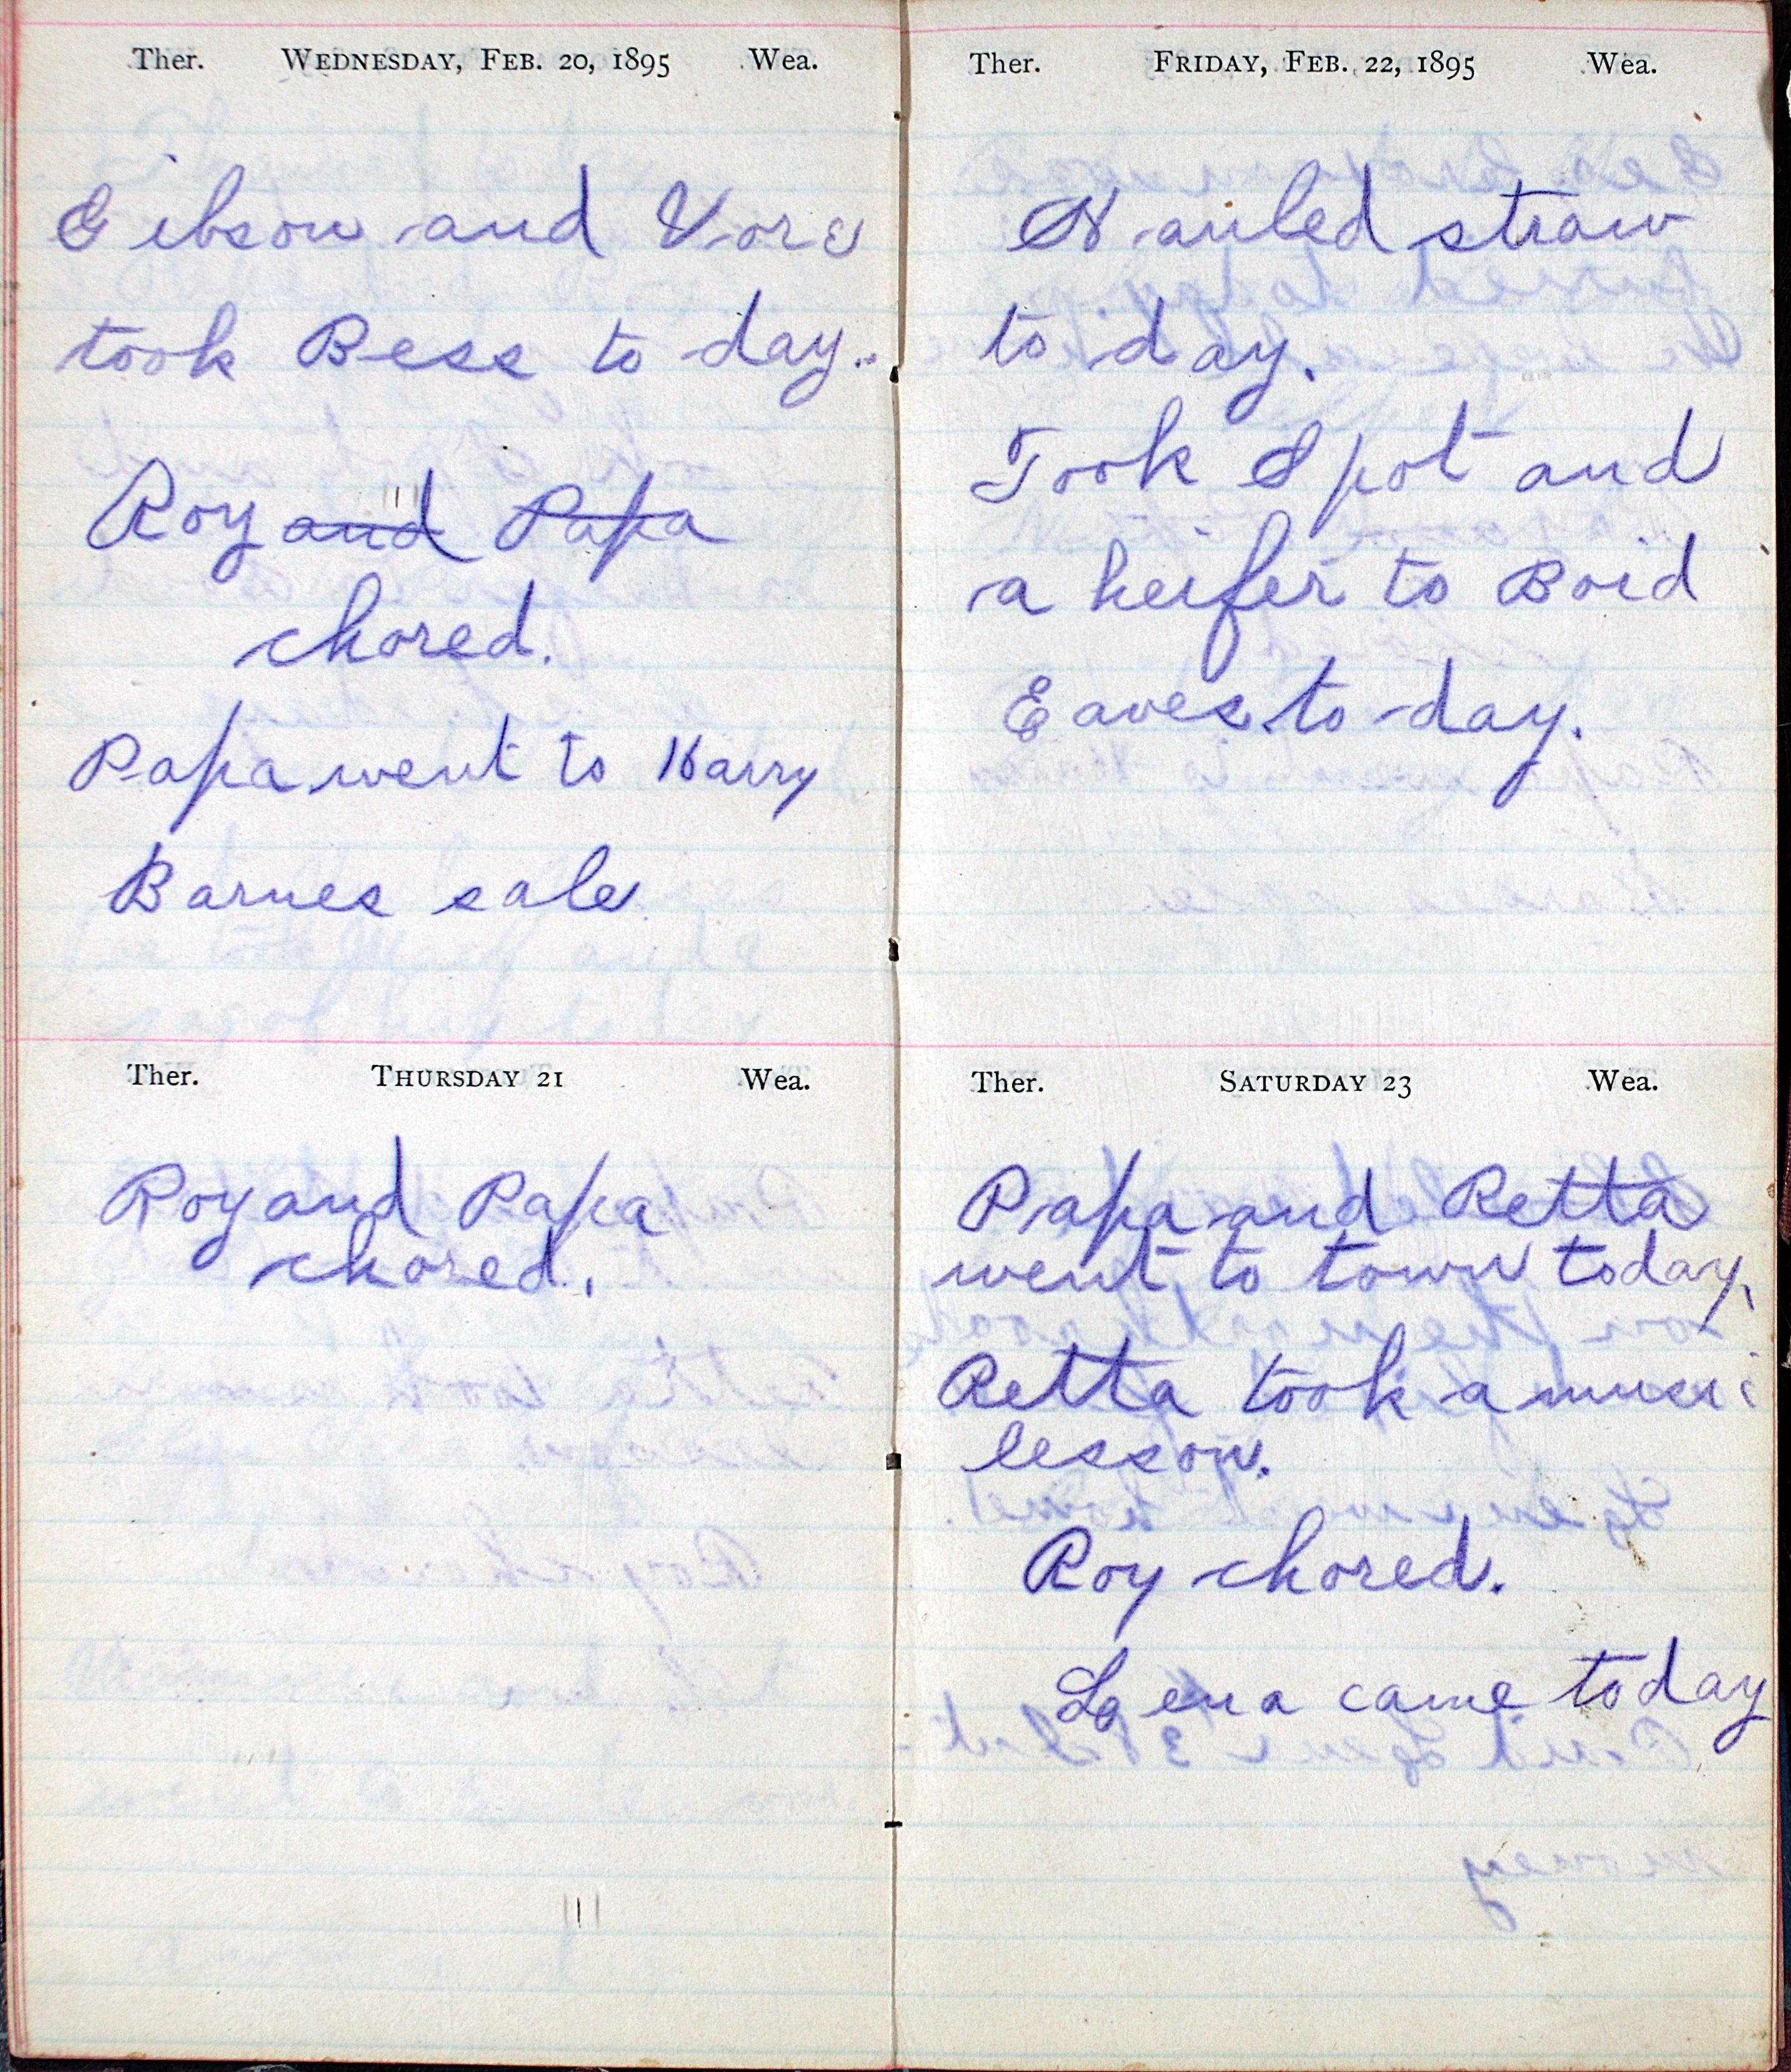 Ther. WEDNESDAY, FEB. 20, 1895 Wea.
Gibson and Vore
took Bess to day.
Roy and Papa
chored.
Papa went to Harry
Barnes sale
Ther. THURSDAY 21 Wea.
Roy and Papa
chored.
Ther. FRIDAY, FEB. 22, 1895 Wea.
Hauled straw
to day.
Took Spot and
a heifer to Boid
Eaves to-day.
Ther. SATURDAY 23 Wea.
Papa and Retta
went to town today.
Retta took a musi
lesson.
Roy chored.
Lena came today